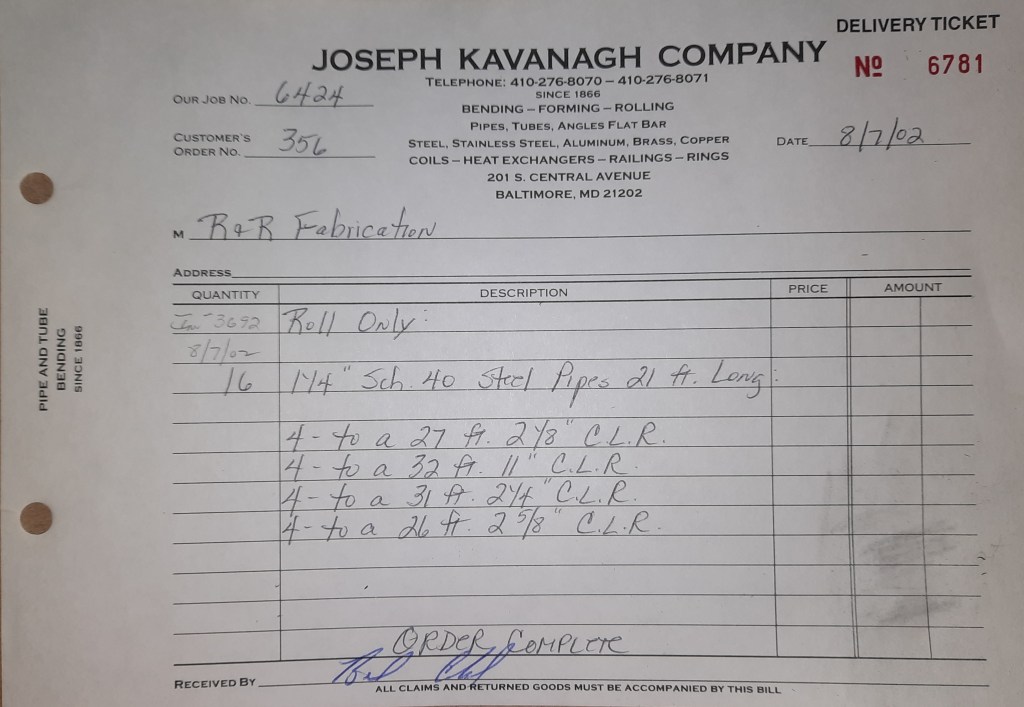 DELIVERY TICKET
JOSEPH KAVANAGH COMPANY
Nº 6781
TELEPHONE: 410-276-8070 – 410-276-8071
SINCE 1866
OUR JOB NO. 6424
BENDING – FORMING – ROLLING
PIPES, TUBES, ANGLES FLAT BAR
CUSTOMER'S
ORDER NO. 356
STEEL, STAINLESS STEEL, ALUMINUM, BRASS, COPPER
DATE 8/7/02
COILS – HEAT EXCHANGERS – RAILINGS – RINGS
201 S. CENTRAL AVENUE
BALTIMORE, MD 21202
M R&R Fabrication
ADDRESS
QUANTITY DESCRIPTION PRICE AMOUNT
3692 Roll Only:
8/7/02
16 1 1/4" Sch. 40 Steel Pipes 21 ft. Long:
4 - to a 27 ft. 2 1/8" C.L.R.
4 - to a 32 ft. 11" C.L.R.
4 - to a 31 ft. 2 1/4" C.L.R.
4 - to a 26 ft. 2 5/8" C.L.R.
ORDER COMPLETE
RECEIVED BY
ALL CLAIMS AND RETURNED GOODS MUST BE ACCOMPANIED BY THIS BILL
PIPE AND TUBE
BENDING
SINCE 1866